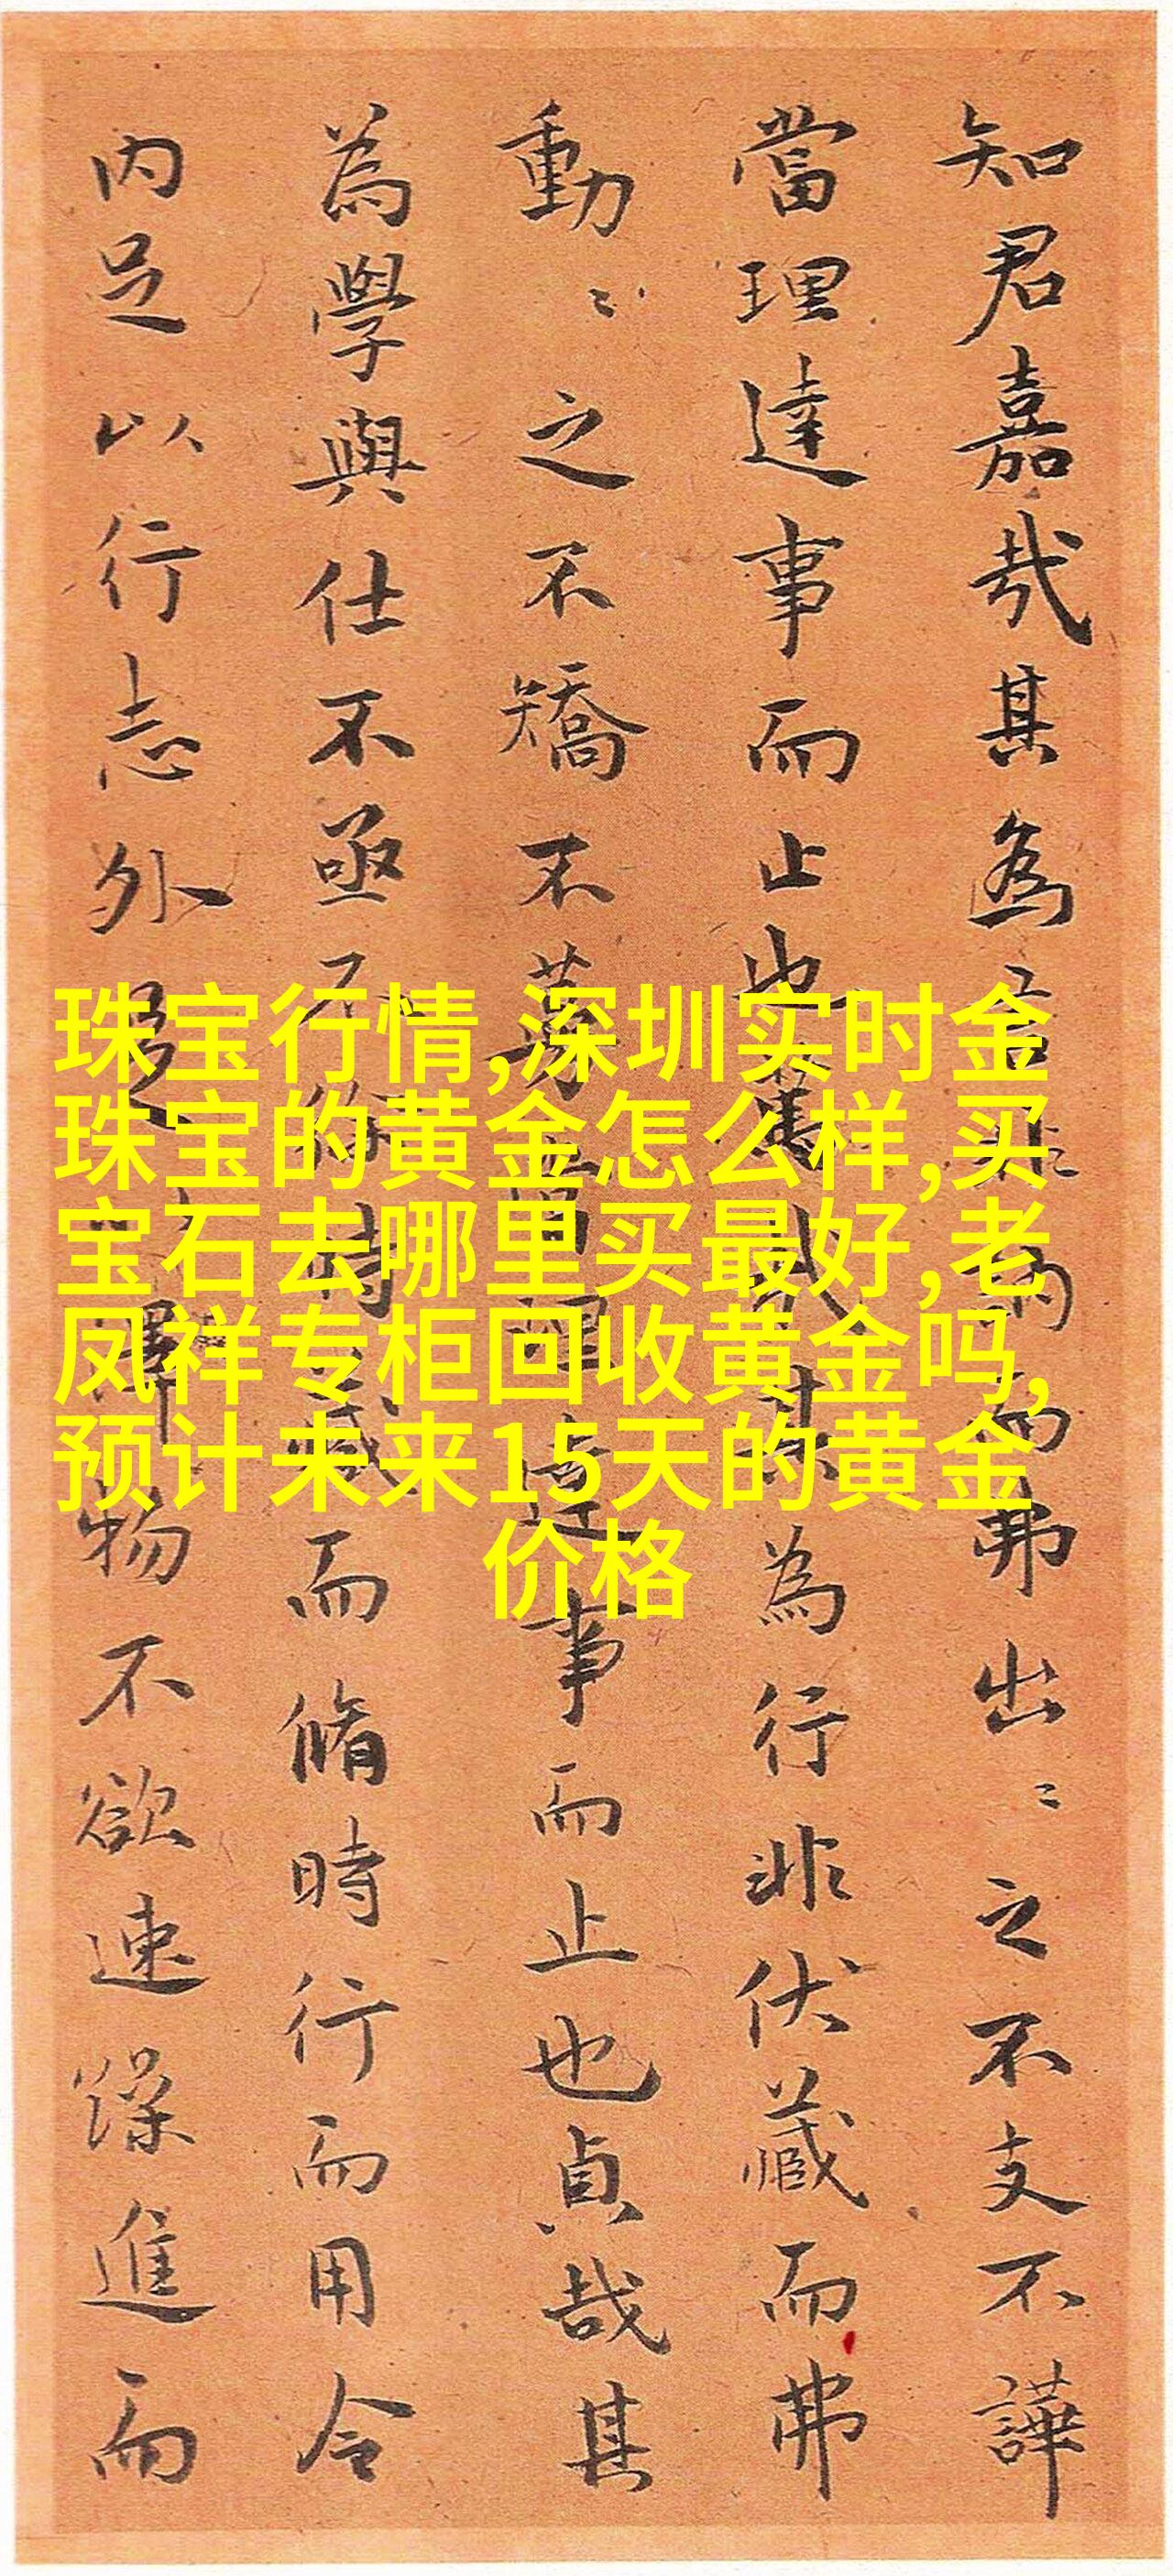 知君嘉哉其為言非訥而弗出〻之不支不譁
當理達事而止也哉其為行非伏藏而弗
動〻之不矯不當理達事而止也貞哉其
為學與仕不亟不徐時藏而脩時行而用令
内足以行志外足以澤物不欲速躁進而
珠宝行情,深圳实时金
珠宝的黄金怎么样,买
宝石去哪里买最好,老
凤祥专柜回收黄金吗,
预计未来15天的黄金
价格